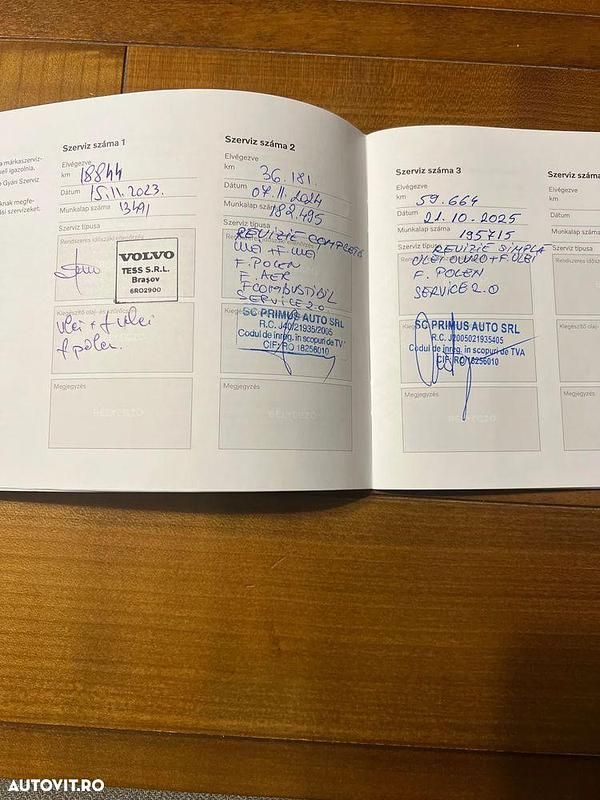 a márkaszerviz-
Gyári Szerviz
Szerviz száma 1
Elvégezve
km 18844
Dátum 15.11.2023.
Munkalap száma 13491
Szerviz típusa
Rendszeres időszaki ellenőrzés
VOLVO
TESS S.R.L.
Braşov
6RO2900
Kiegészítő olaj-
Ulei + f ulei
f polen.
Megjegyzés
BÉLYEGZŐ
Szerviz száma 2
Elvégezve
km 36.181.
Dátum 04.11.2024
Munkalap száma 182.495
Szerviz típusa
REVIZIE COMPLETĂ
ULEI + F. ULEI
F. POLEN
F. AER
F COMBUSTIBIL
SERVICE 2.0
SC PRIMUS AUTO SRL
R.C. J40/21935/2005
Codul de înreg. în scopuri de TV
CIF: RO 18256010
Megjegyzés
BÉLYEGZŐ
Szerviz száma 3
Elvégezve
km 59.664
Dátum 21.10.2025
Munkalap száma 195415
Szerviz típusa
REVIZIE SIMPLA
F. POLEN
SERVICE 2.0
SC PRIMUS AUTO SRL
R.C. J2005021935405
Codul de înreg. în scopuri de TVA
CIF: RO 18256010
Megjegyzés
BÉLYEGZŐ
Szerviz szá
Elvégezve
km
Dátum
Munkalap
Szerviz típus
Rendszeres
Kiegészítő
Megjegyzés
AUTOVIT.RO